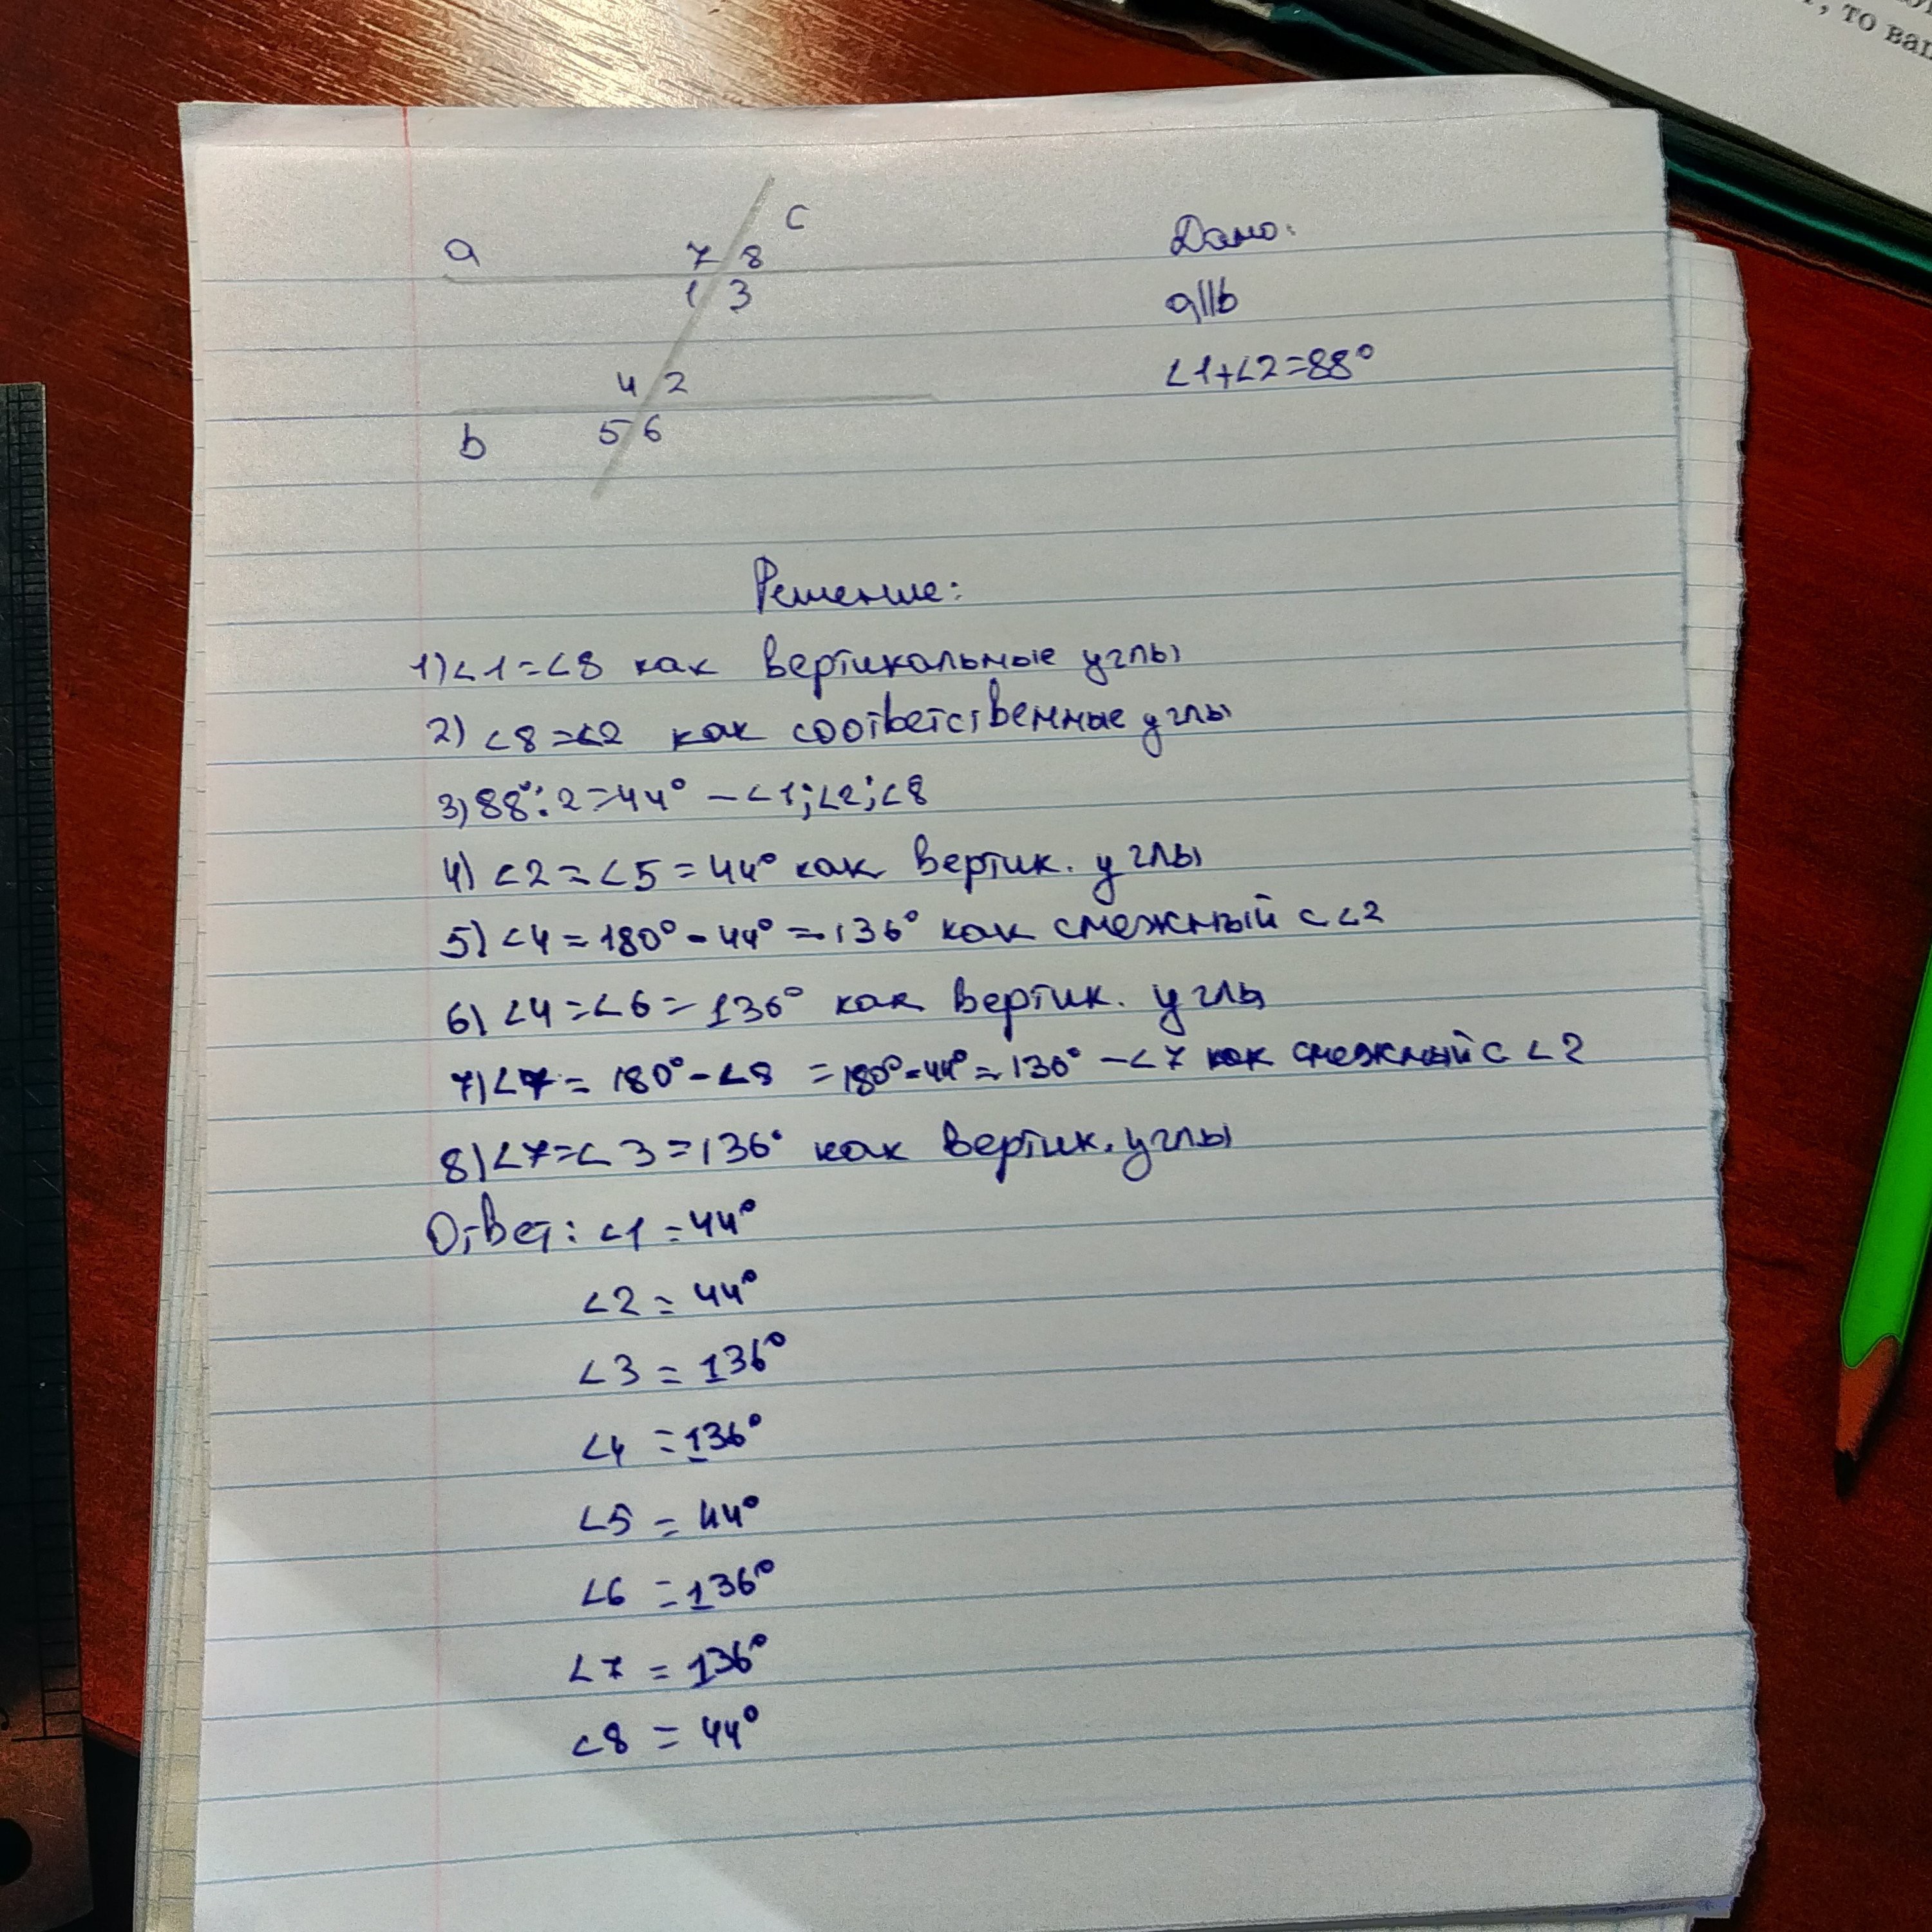 от
, то ваш
a
c
7 8
1 3
4 2
b
5 6
Дано:
a||b
∠1+∠2=88°
Решение:
1)∠1=∠8 как вертикальные углы
2) ∠8=∠2 как соответственные углы
3)88°:2=44° –∠1;∠2;∠8
4) ∠2=∠5=44° как вертик. углы
5) ∠4=180°-44°=136° как смежный с ∠2
6) ∠4=∠6=136° как вертик. углы
7)∠7=180°-∠8 =180°-44°=136° –∠7 как смежный с ∠2
8)∠7=∠3=136° как вертик. углы
Ответ: ∠1=44°
∠2=44°
∠3=136°
∠4=136°
∠5=44°
∠6=136°
∠7=136°
∠8=44°